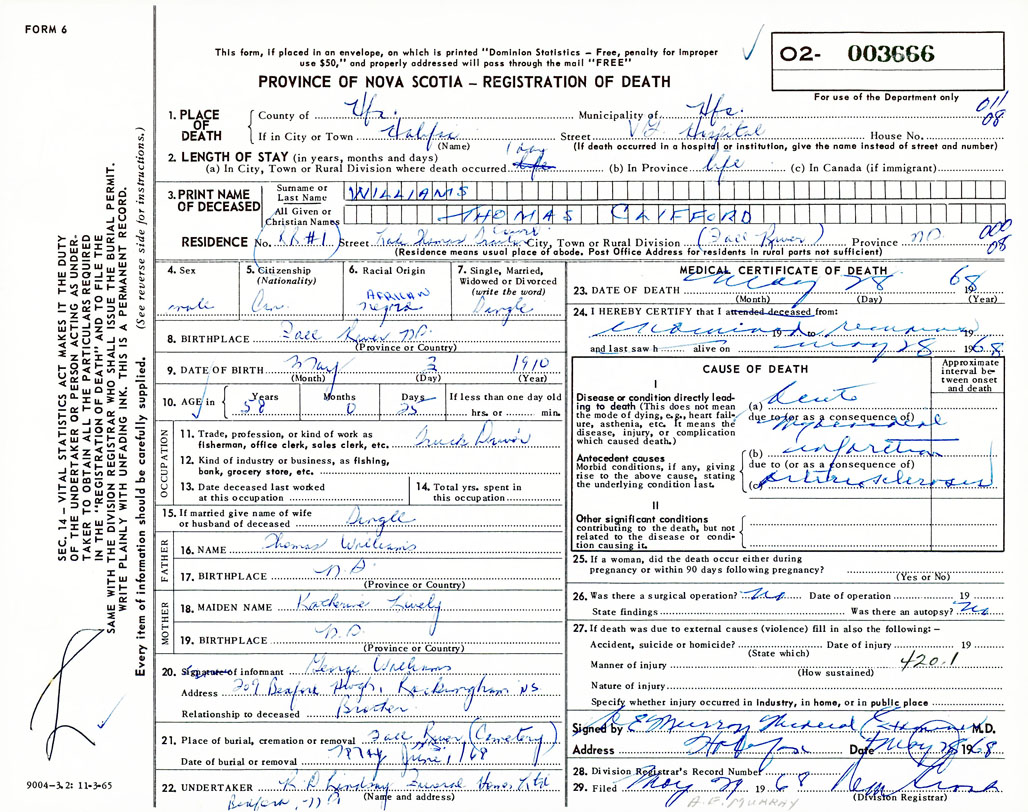 FORM 6
This form, if placed in an envelope, on which is printed "Dominion Statistics – Free, penalty for improper
use $50," and properly addressed will pass through the mail "FREE"
O2- 003666
PROVINCE OF NOVA SCOTIA – REGISTRATION OF DEATH
For use of the Department only
011
08
1. PLACE OF DEATH
County of Hfx. Municipality of Hfx.
If in City or Town Halifax Street V.G. Hospital House No.
(Name) (If death occurred in a hospital or institution, give the name instead of street and number)
2. LENGTH OF STAY (in years, months and days)
1 day
(a) In City, Town or Rural Division where death occurred life (b) In Province life (c) In Canada (if immigrant)
3. PRINT NAME OF DECEASED
Surname or Last Name WILLIAMS
All Given or Christian Names THOMAS CLIFFORD
RESIDENCE No. RR#1 Street Lake Thomas City, Town or Rural Division (Fall River) Province N.S.
000
08
(Residence means usual place of abode. Post Office Address for residents in rural parts not sufficient)
4. Sex male
5. Citizenship (Nationality) Can.
6. Racial Origin AFRICAN negro
7. Single, Married, Widowed or Divorced (write the word) Single
8. BIRTHPLACE Fall River N.S.
(Province or Country)
9. DATE OF BIRTH May 3 1910
(Month) (Day) (Year)
10. AGE in Years 58 Months 0 Days 25 If less than one day old hrs. or min.
OCCUPATION
11. Trade, profession, or kind of work as fisherman, office clerk, sales clerk, etc. Truck Driver
12. Kind of industry or business, as fishing, bank, grocery store, etc.
13. Date deceased last worked at this occupation
14. Total yrs. spent in this occupation
15. If married give name of wife or husband of deceased Single
FATHER
16. NAME Thomas Williams
17. BIRTHPLACE N.S.
(Province or Country)
MOTHER
18. MAIDEN NAME Katherine Lively
19. BIRTHPLACE N.S.
(Province or Country)
20. Signature of informant George Williams
Address 209 Bedford Hwgh, Rockingham NS
Relationship to deceased Brother
21. Place of burial, cremation or removal Fall River (Cemetery)
Date of burial or removal June 1/68
22. UNDERTAKER R D Lindsay Funeral Home Ltd
(Name and address)
Bedford, N S
MEDICAL CERTIFICATE OF DEATH
23. DATE OF DEATH May 28 1968
(Month) (Day) (Year)
24. I HEREBY CERTIFY that I attended deceased from:
examined 19 to remains
and last saw h alive on May 28 1968
CAUSE OF DEATH
Approximate interval between onset and death
I
Disease or condition directly leading to death (This does not mean the mode of dying, e.g., heart failure, asthenia, etc. It means the disease, injury, or complication which caused death.)
(a) Acute
due to (or as a consequence of)
myocardial
Antecedent causes
Morbid conditions, if any, giving rise to the above cause, stating the underlying condition last.
(b) infarction
due to (or as a consequence of)
(c) Arteriosclerosis
II
Other significant conditions contributing to the death, but not related to the disease or condition causing it.
25. If a woman, did the death occur either during pregnancy or within 90 days following pregnancy?
(Yes or No)
26. Was there a surgical operation? No Date of operation 19
State findings Was there an autopsy? No
27. If death was due to external causes (violence) fill in also the following:–
Accident, suicide or homicide? Date of injury 19
(State which)
420.1
Manner of injury
(How sustained)
Nature of injury
Specify whether injury occurred in Industry, in home, or in public place
Signed by R E Murray Medical Examiner M.D.
Address Halifax Date May 28 1968
28. Division Registrar's Record Number
29. Filed May 29 1968
(Division Registrar)
A.E. MURRAY
SEC. 14 – VITAL STATISTICS ACT MAKES IT THE DUTY
OF THE UNDERTAKER OR PERSON ACTING AS UNDER-
TAKER TO OBTAIN ALL THE PARTICULARS REQUIRED
IN THE "REGISTRATION OF DEATH" AND TO FILE THE
SAME WITH THE DIVISION REGISTRAR WHO SHALL ISSUE THE BURIAL PERMIT.
WRITE PLAINLY WITH UNFADING INK. THIS IS A PERMANENT RECORD.
Every item of information should be carefully supplied. (See reverse side for instructions.)
9004-3.2: 11-3-65